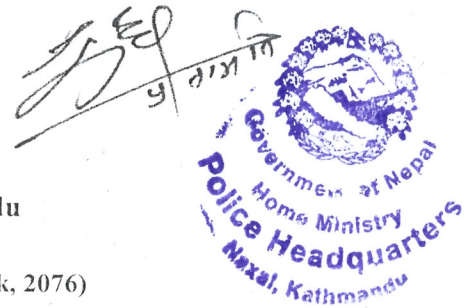 प्र ना म नि
Government of Nepal
Home Ministry
Police Headquarters
Naxal, Kathmandu
du
k, 2076)